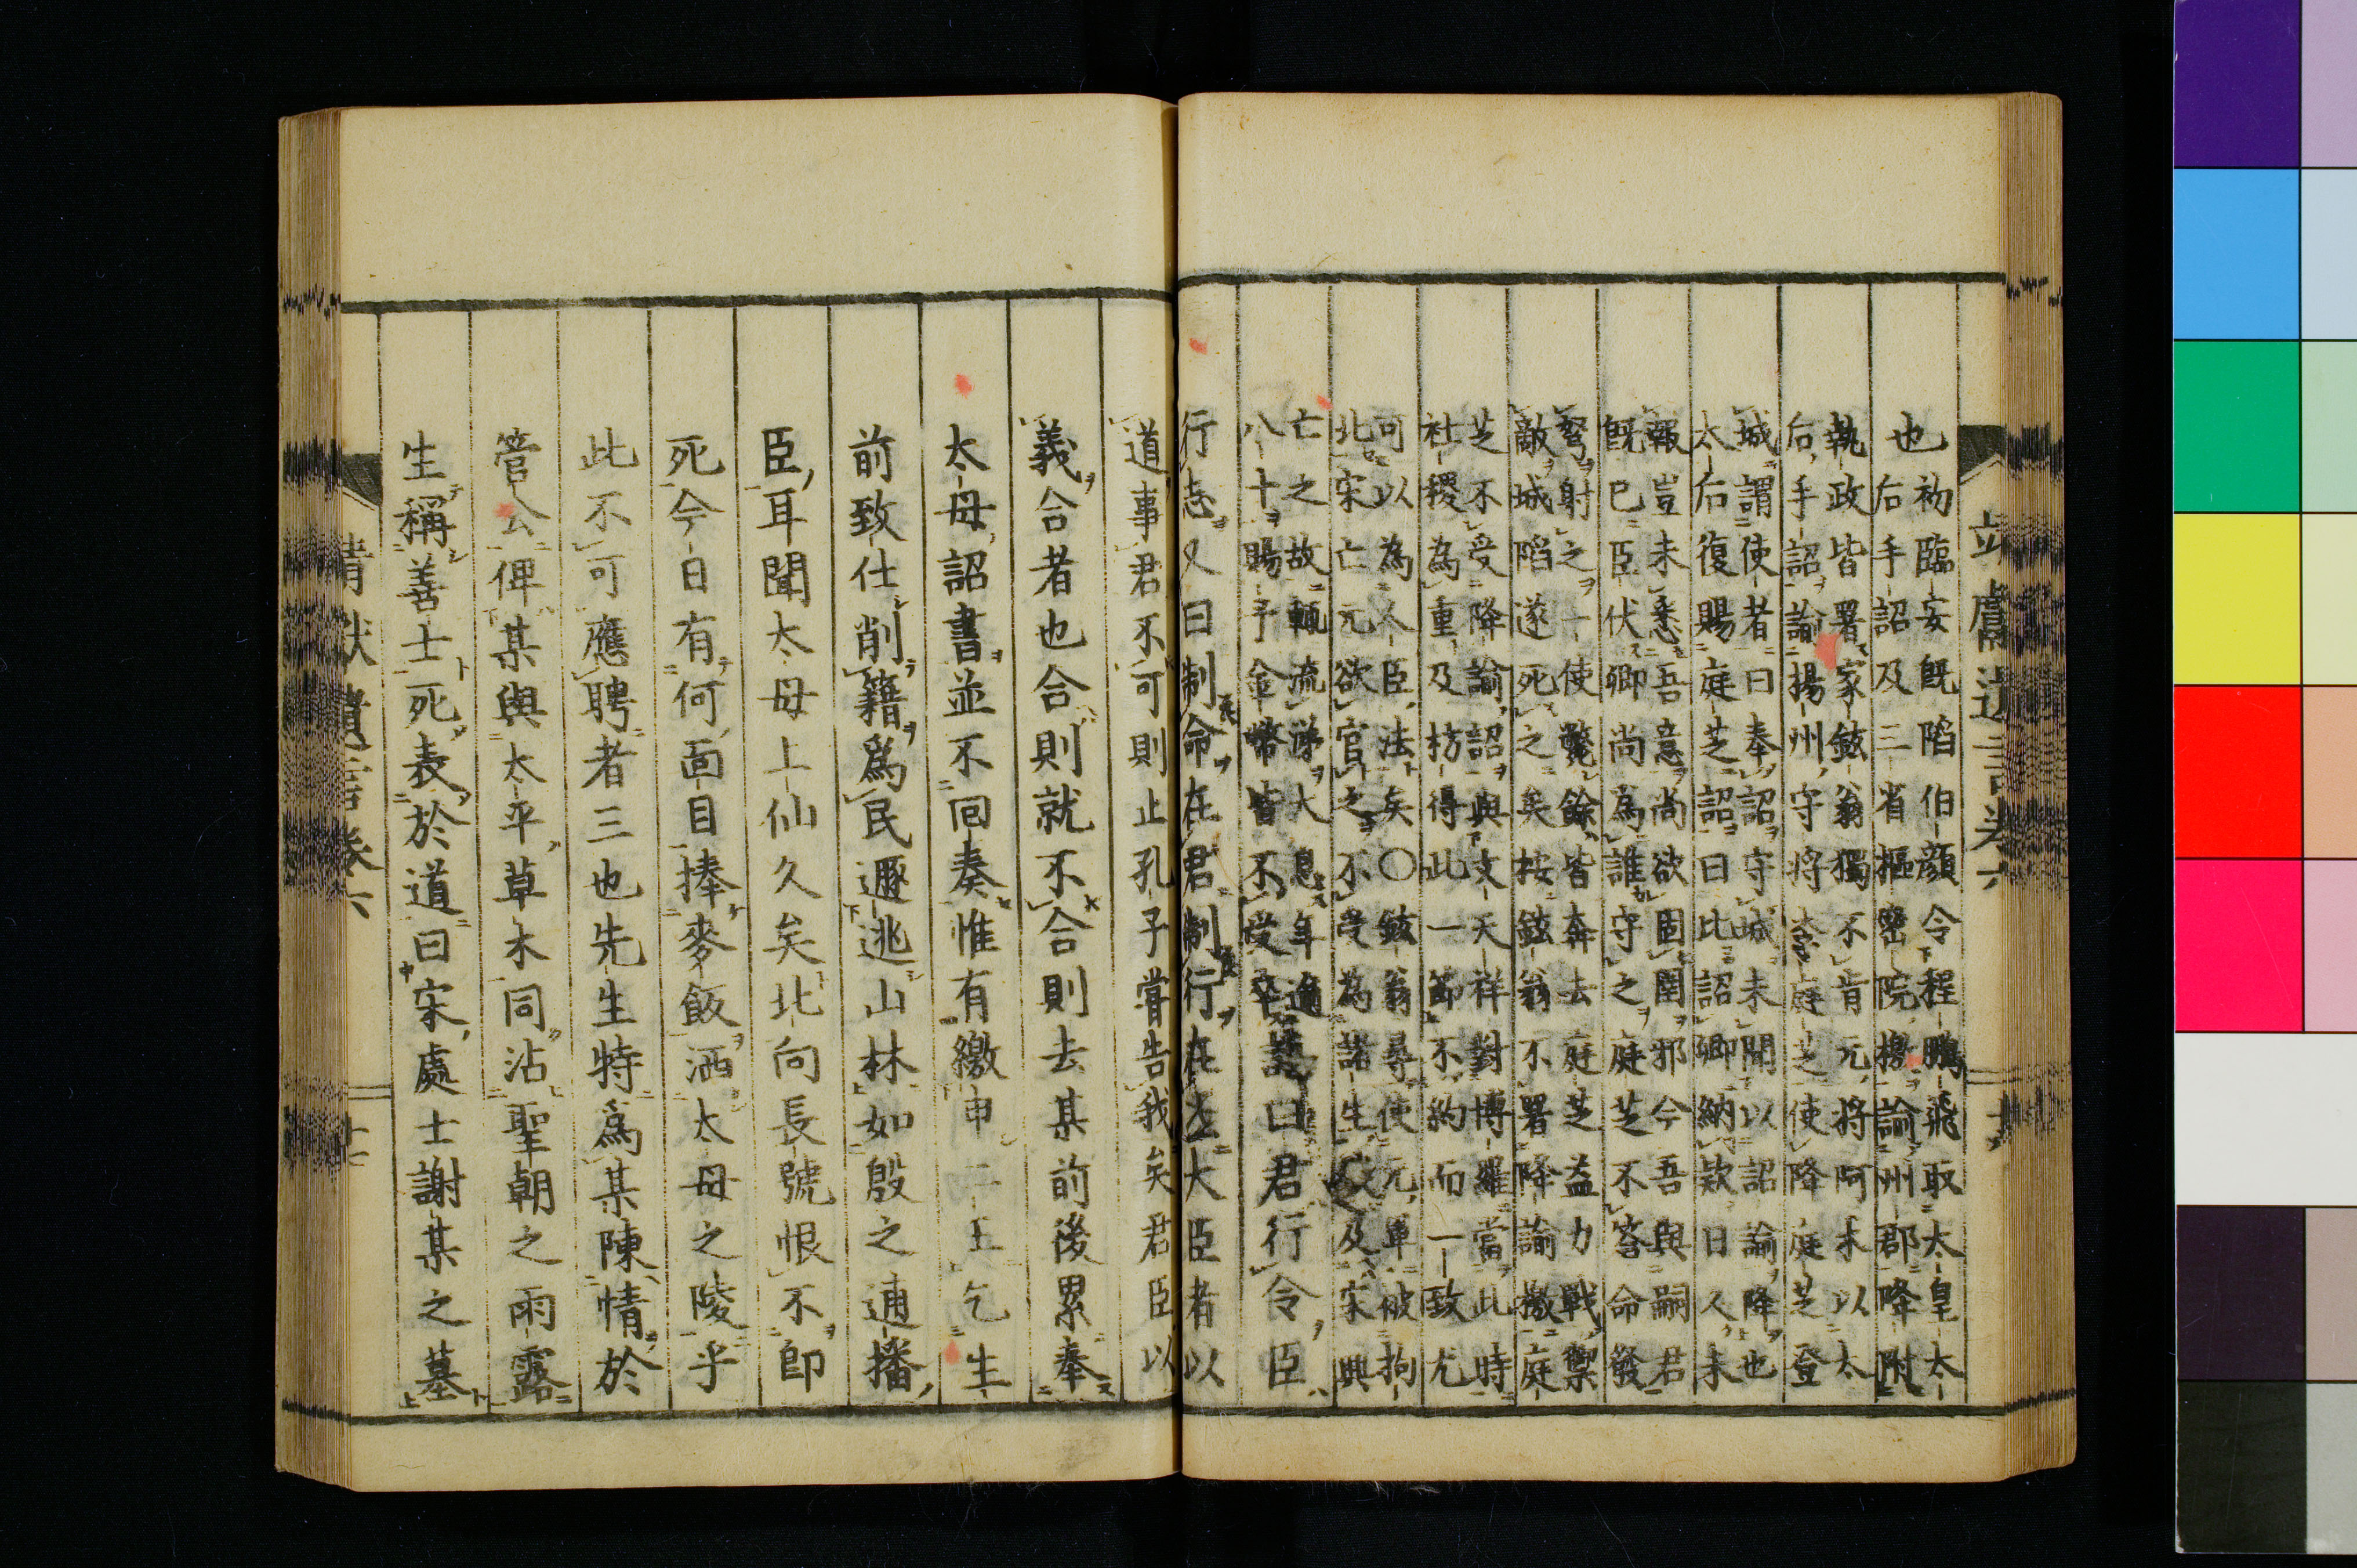 靖獻遺言卷六
也
初臨安既陷伯顔令程鵬飛取太皇太
后手詔及三省樞密院檄諭州郡降附
執政皆署家鉉翁獨不肯元將阿朮以太
后手詔諭揚州守將李庭芝使降庭芝登
城謂使者曰奉詔守城未聞以詔諭降也
太后復賜庭芝詔曰比詔卿納欵日久未
報豈未悉吾意尚欲固圉邪今吾與嗣君
既已臣伏卿尚為誰守之庭芝不答命發
弩射之一使斃餘皆奔去庭芝益力戰禦
敵城陷遂死之矣按鉉翁不署降諭檄庭
芝不受降諭詔與文天祥對博羅當此時
社稷為重及枋得此一節不約而一致尤
可以為人臣法矣〇鉉翁尋使元單被拘
北宋亡元欲官之不受為諸生談及宋興
亡之故輒流涕大息年逾
八十賜予金幣皆不受卒
語曰君行令臣
行志又曰制命在君制行在臣大臣者以
道事君不可則止孔子嘗告我矣君臣以
義合者也合則就不合則去某前後累奉
太母詔書並不回奏惟有繳申二王乞生
前致仕削籍爲民遯逃山林如殷之逋播
臣耳聞太母上仙久矣北向長號恨不即
死今日有何面目捧麥飯洒太母之陵乎
此不可應聘者三也先生特爲某陳情於
管公俾某與太平草木同沾聖朝之雨露
生稱善士死表於道曰宋處士謝某之墓
靖獻遺言卷六